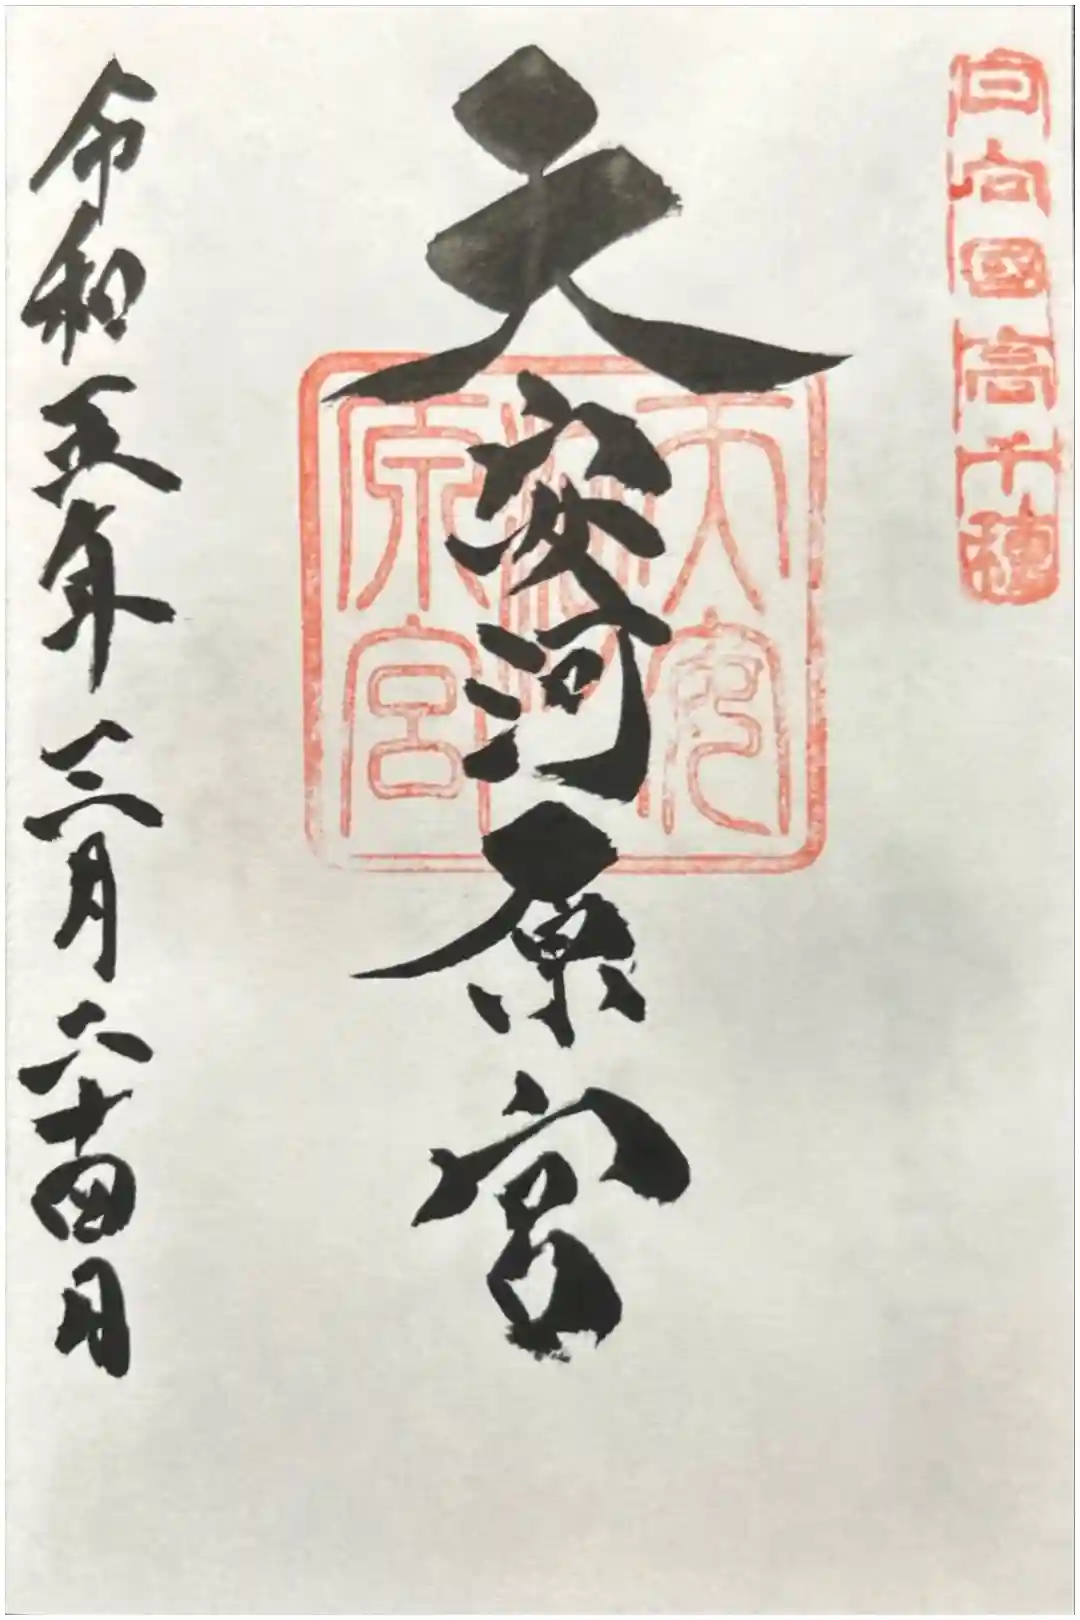 日向國高千穂
天安河原宮
天安
河
原宮
令和五年三月二十四日